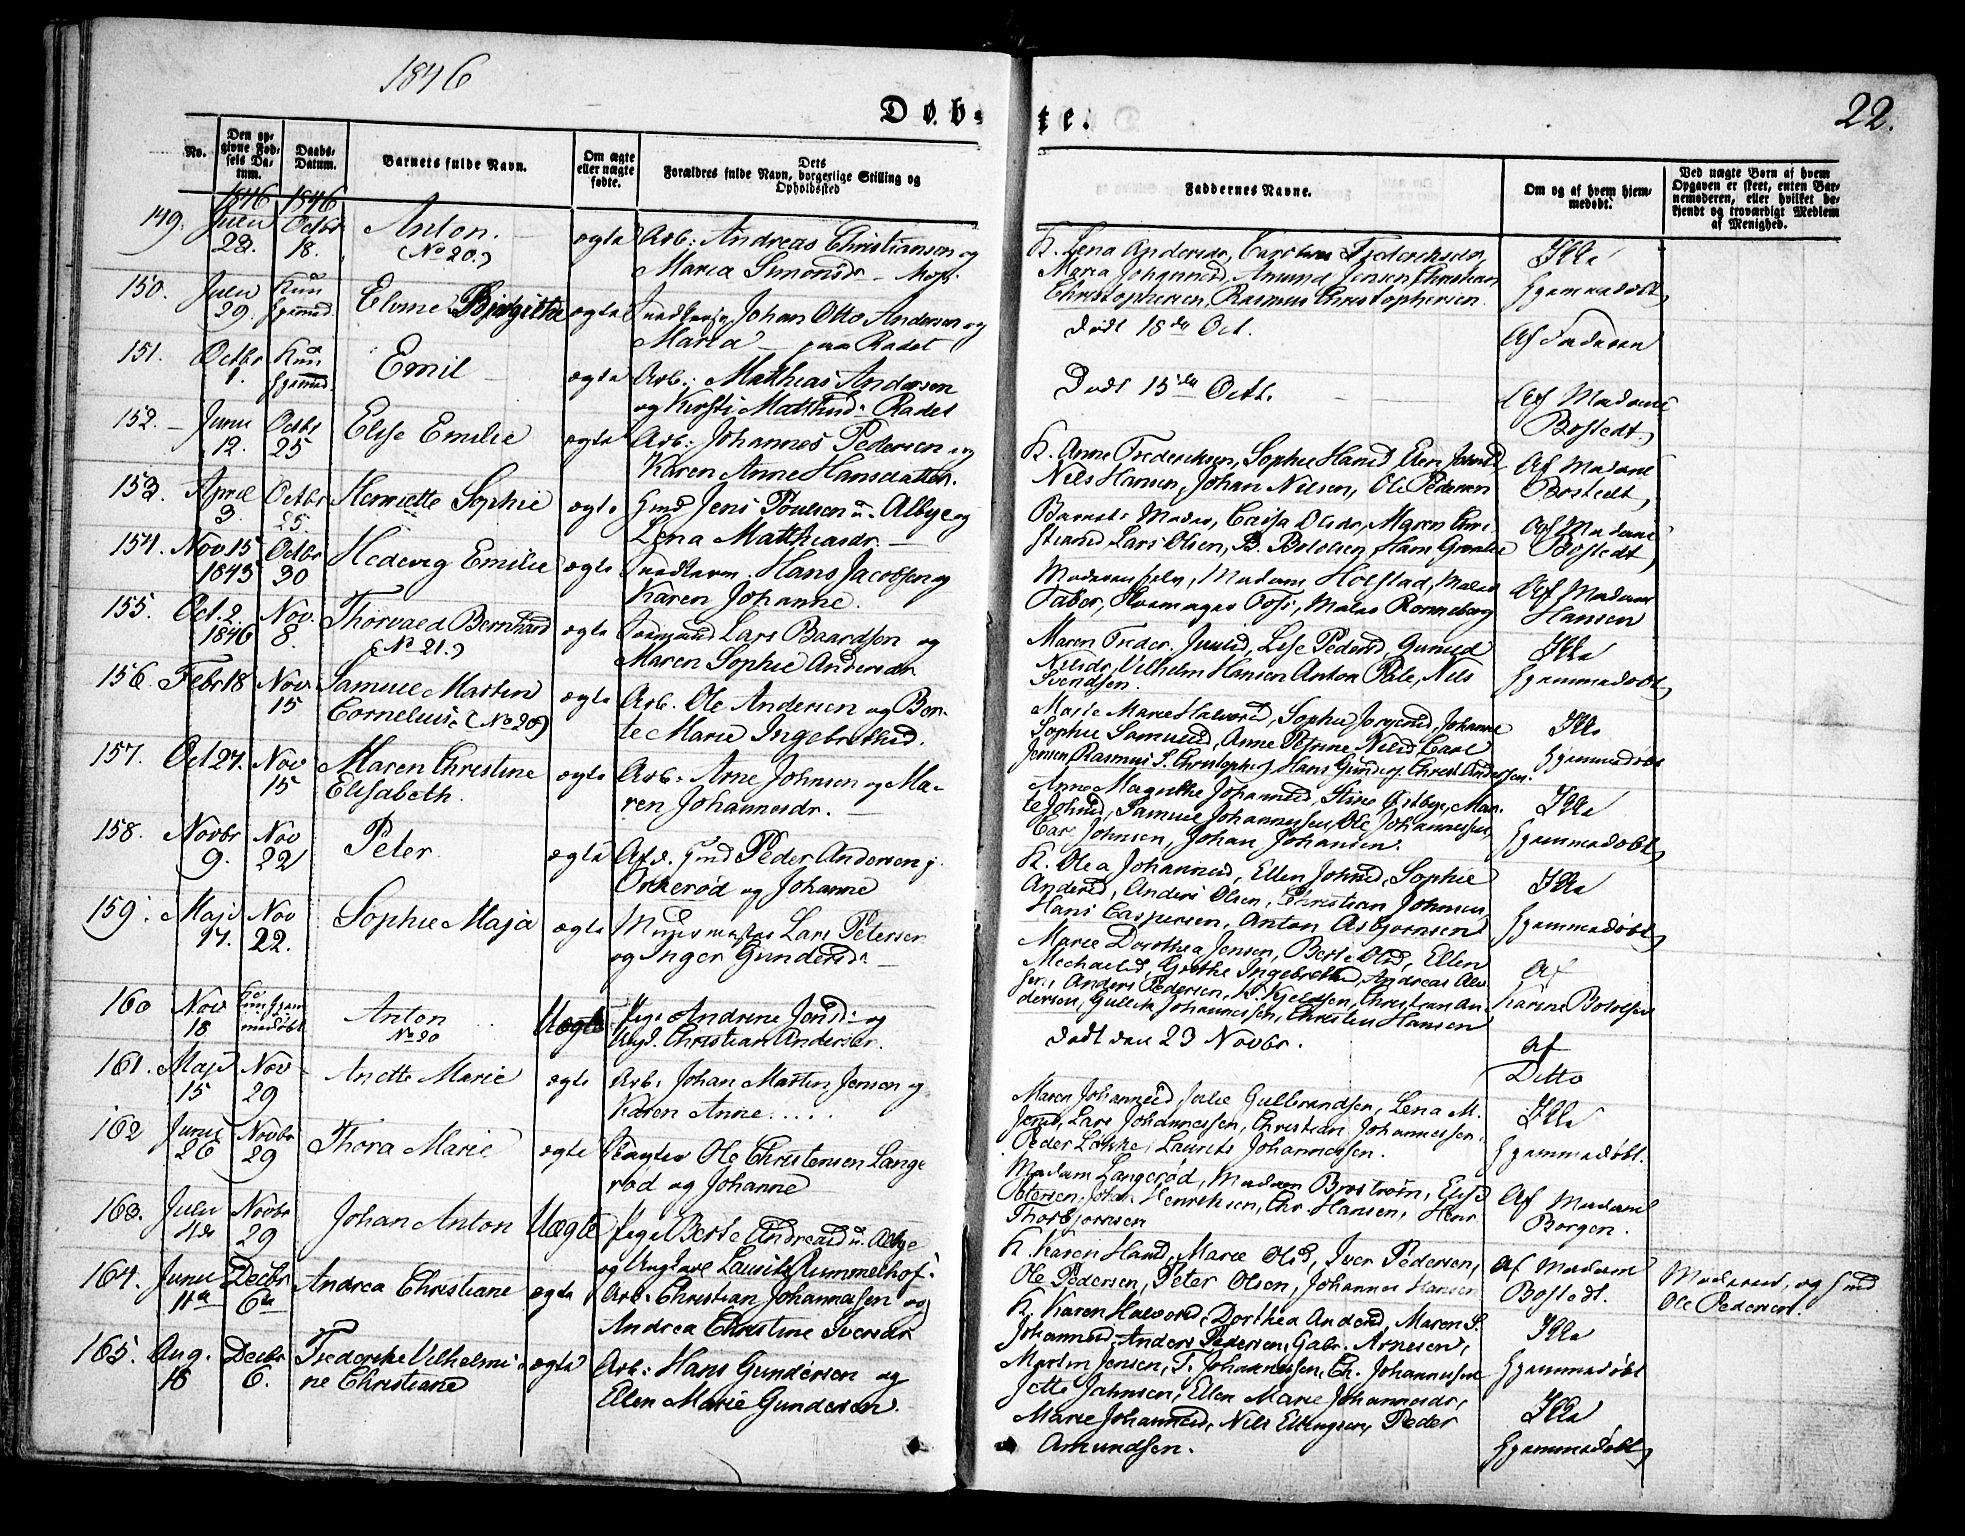 1846
Døb-
te.
22.
No.
Den op-
givne Fød-
sels Da-
tum.
Daabs-
Datum.
Barnets fulde Navn.
Om ægte
eller uægte
fødte.
Dets
Forældres fulde Navn, borgerlige Stilling og
Opholdssted
Faddernes Navne.
Om og af hvem hjem-
medøbt.
Ved uægte Børn af hvem
Opgaven er skeet, enten Bar-
nemoderen, eller hvilket be-
kjendt og troværdigt Medlem
af Menighed.
1846 1846
149. Juli 23. Octbr 18. Anton. ægte Arb: Andreas Christiansen og
(No 20.) Maria Simonsdr - Moss.
K. Lena Andersdr, Frederiksdr,
Maria Johannesd, Amund Jensen, Christian
Christophersen, Rasmus Christophersen.
Ikke
hjemmedøbt
150. Juli 29. Kun hjemmed. Elvine Birgitte ægte Johan Otto Andersen og
Maria - paa Radet
Dødt 18de Oct.
Af Faderen
151. Octbr 1. Kun hjemmed. Emil - ægte Arb: Mathias Andersen
og Kirsti Matthisd: Radet
Dødt 15de Octb.
Af Madame
Bostedt
152. - Juni 12. Octbr 25 Elise Emilie ægte Arb: Johannes Pedersen og
Karen Anne Hansdatter.
K. Anne Frederiksen, Sophie Hansd, Elen
Nils Hansen, Johan Nilsen, Ole Pedersen
Af Madame
Bostedt
153. April 3. Octbr 25. Henriette Sophie ægte Jens Poulsen u. Albye og
Lena Matthiasdr. -
Barnets Moder, Maren
Lars Olsen, B. Bololsen, Hans
Af Madame
Bostedt
154. Nov 15 1845 Octbr 30 Hedevig Emilie ægte Hans Jacobsen og
Karen Johanne.
Madam Holstad,
Faber, Foss, Maler Ronneberg
Af Madam
Hansen
155. Oct. 2. 1846 Nov. 8. Thorvald Bernhard ægte Lars Baardsen og
(No 21.) Maren Sophie Andersdr
Maren Freder. Juulsd, Lise Pedersd, Gunild
Nilsdr, Vilhelm Hansen Anton Pale, Nils
Svendsen.
Ikke
hjemmedøbt
156. Febr 18 Nov 15 Samuel Martin ægte Arb. Ole Andersen og Ber-
Cornelius. (No 20) te Marie Ingebretsd.
Marie Halvorsd, Sophie Jørgensd, Johanne
Sophie Samuelsd, Anne Petrine Nilsd Carl
Jensen Rasmus S. Christophers, Hans Gunders, Christ. Andersen.
Ikke
hjemmedøbt
157. Oct 27. Nov 15 Maren Christine ægte Arb: Arne Johnsen og Ma-
Elisabeth. ren Johannesdr. -
Anne Magrethe Johannesd, Stine Østbye, Mar-
te Johnsd, Samuel Johannessen, Ole Johannessen,
Carl Johnsen, Johan Johansen.
Ikke
hjemmedøbt
158. Novbr 9. Nov 22 Peter ægte Peder Andersen
Orkerød og Johanne
K. Olea Johannesd, Ellen Johnsd, Sophie
Andersd, Anders Olsen, Christian Johnsen,
Hans Caspersen, Anton Asbjørnsen
Ikke
hjemmedøbt
159. Maji 17. Nov 22. Sophie Maja ægte Lars Petersen
og Inger Gundersd: -
Marie Dorothea Jensen, Berte Olsd, Ellen
Mechaelsd, Grethe Ingebretsd, Andreas
Anders Pedersen, L. Kjeldsen, Christian An-
dersen, Gullik Johannessen, Christen Hansen
Af
Karine Bololsen
160 Nov 18 Kun hjem-
medøbt Anton Uægte Pige Andrine Jensd: og
No 20 Ungk. Christian Andersen.
dødt den 23 Novbr.
af
Ditto
161. Maji 15 Nov 29 Anette Marie ægte Arb: Johan Martin Jensen og
Karen Anne.....
Maren Johannesd Julie Gulbrandsen, Lena M.
Jensd, Lars Johannessen, Christian Johannessen.
Peder Løkke, Laurits Johannessen.
Ikke
hjemmedøbt.
162 Juni 26 Novbr 29 Thora Marie ægte Ole Christensen Lange
rød og Johanne
Madam Langerød, Madam Brostrøm, Elise
Petersen, Johan Henriksen, Chr Hansen, Henr
Thorbjørnsen
Af Madam
Borgen.
163. Juli 4de Novbr 29 Johan Anton Uægte Pige Berte Andreasd u. Albye
og Ungkarl Laurits Rummelhof.
K. Karen Hansd, Marie Olsd, Iver Pedersen,
Ole Pedersen, Peter Olsen, Johannes Hansen
Af Madam
Bostedt.
Moderen, og
Ole Pedersen.
164. Juni 11te Decbr 6te Andrea Christiane ægte Arb: Christian Johannessen og
Andrea Christine Iversdr
K. Karen Halvorsd, Dorthea Andersd, Maren S.
Johannesd, Anders Pedersen, Gabr. Arnesen,
Martin Jensen, T. Johannessen, Ch. Johannessen
Ikke
hjemmedøbt
165. Aug. 18 Decbr 6. Frederikke Vilhelmi- ægte Arb: Hans Gundersen og
ne Christiane Ellen Marie Gundersen.
Jette Jahnsen, Ellen Marie Johannesdr,
Marie Johannesd, Nils Ellingsen, Peder
Amundsen.
Ikke
hjemmedøbt